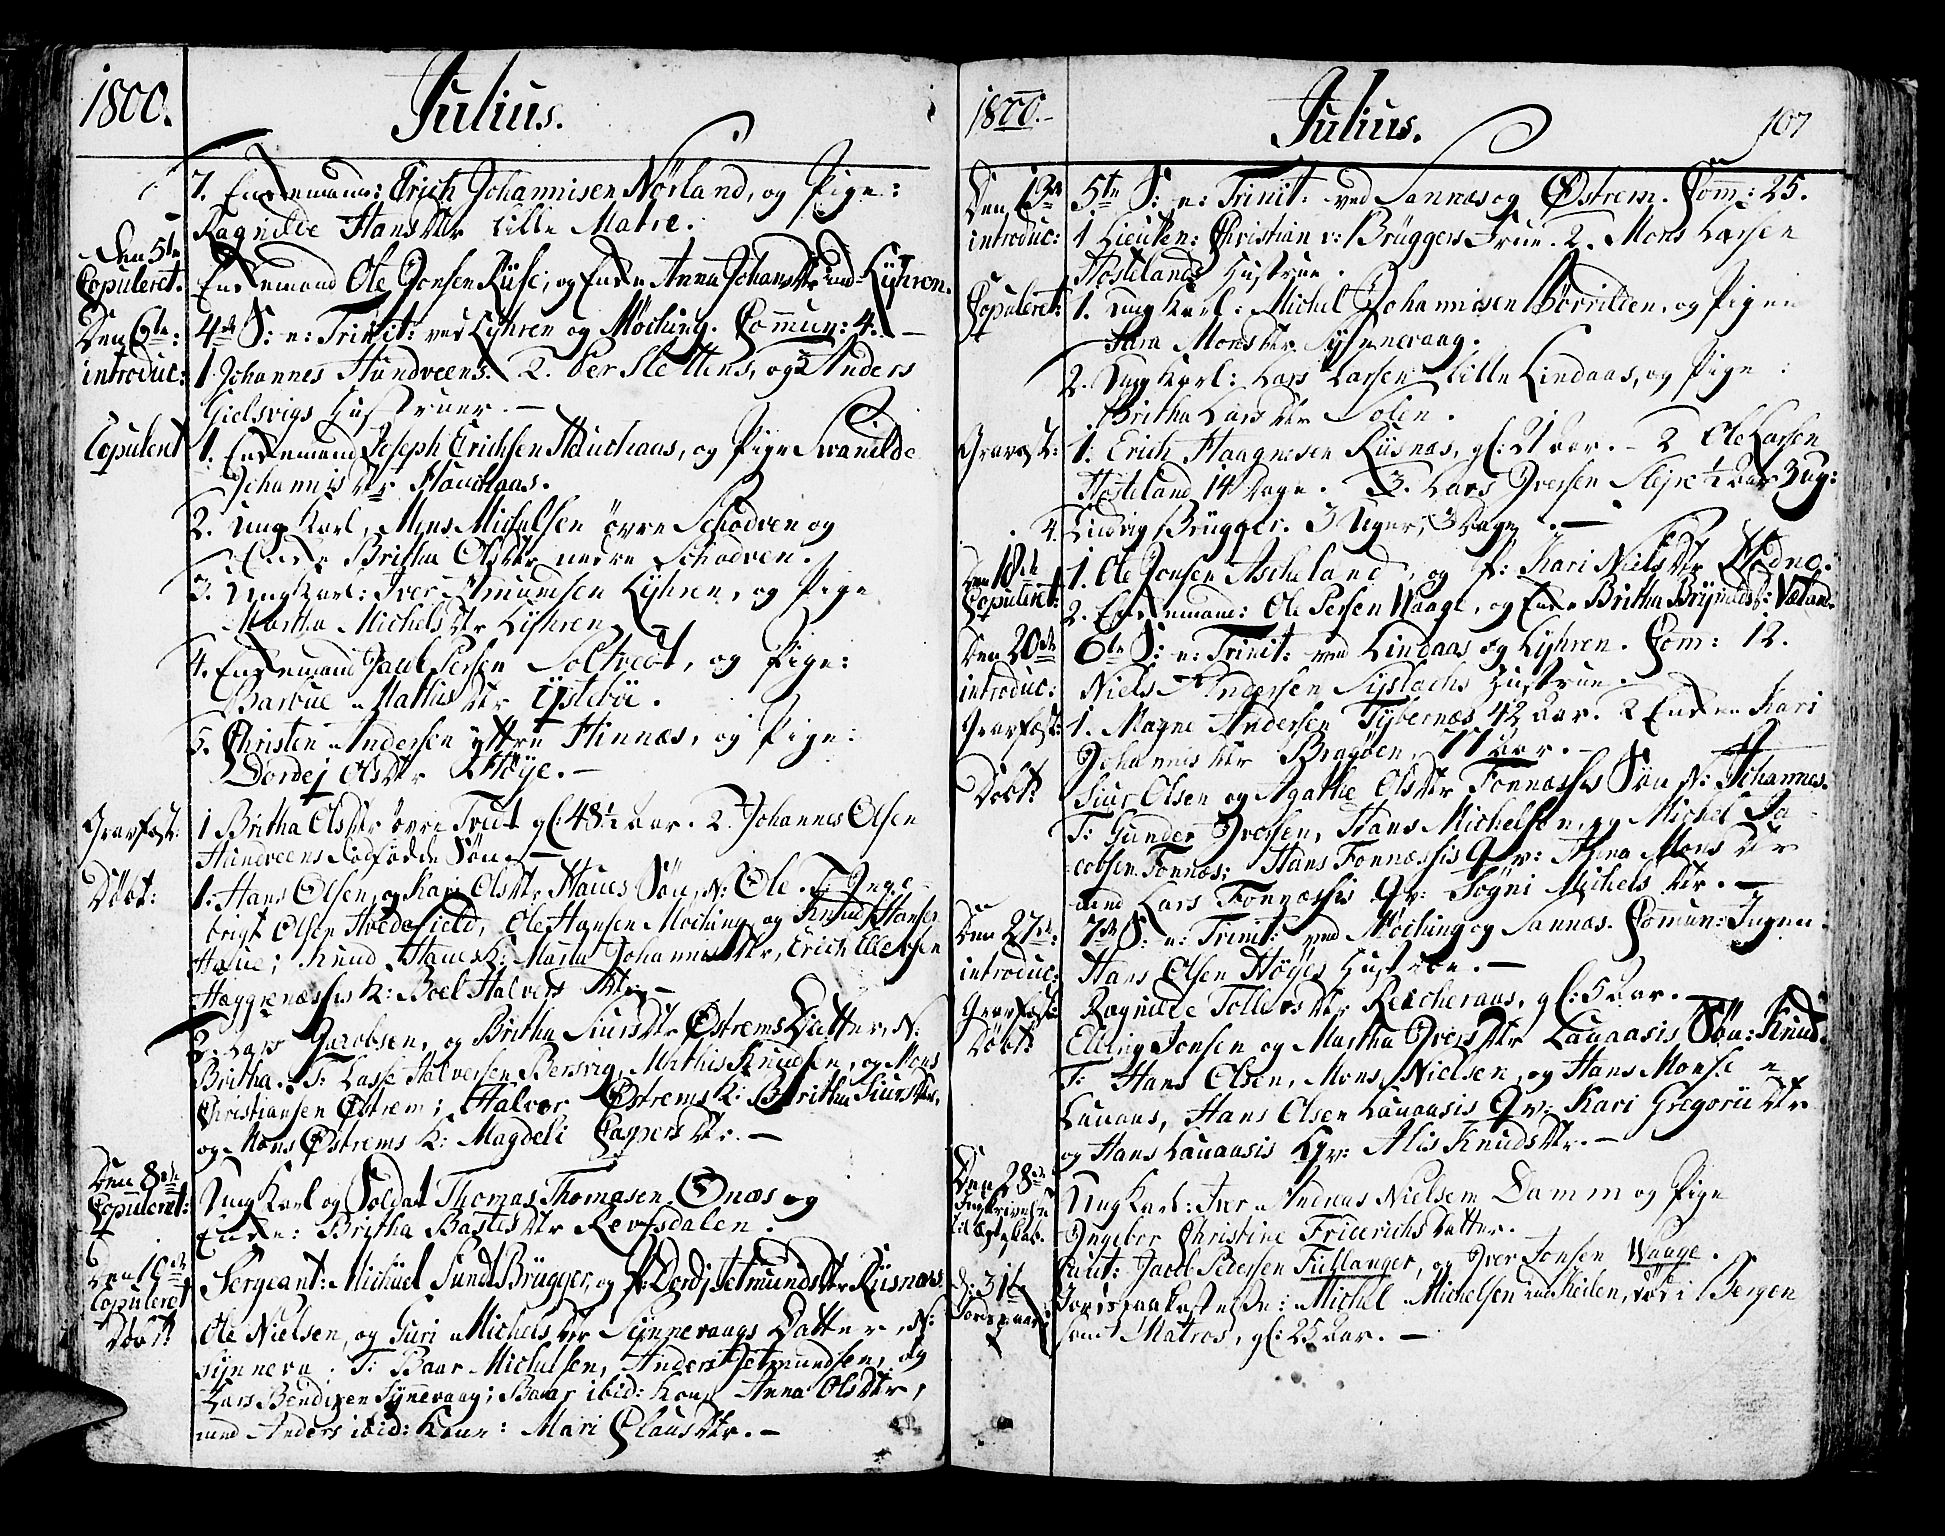 1800.
Julius.
7. Enkemand: Erich Johannisen Nørland, og Pige:
Ragnilde Hansdtr lille Matre.
Den 5te
Copuleret.
Enkemand Ole Jonsen Riise, og Enke Anna Johansdtr ind-Lyhren.
Den 6te:
4de S: e: Trinit: ved Lyhren og Mochung. Commun: 4. –
introduc:
1. Johannes Hundveens. 2. Per Slettens, og 3 Anders
Gielsvigs Hustruer. –
Copuleret
1. Enkemand Joseph Erichsen Houchaas, og Pige Svanilde
Johannisdtr Houchaas.
2. Ung Karl, Mons Michelsen øvre Schodven og
Enke Britha Olsdtr nedre Schodven.
3. Ung Karl: Iver Amundsen Lyhren, og Pige
Martha Michelsdtr Lyhren
4. Enkemand Jacob Persen Soltvedt, og Pige:
Barbue Mathisdtr Ystebøe.
5. Christen Andersen yttre Hinnæs, og Pige:
Dordej Olsdtr Høye. –
Gravfæst:
1 Britha Olsdtr øvre Tvedt gl: 48½ aar. 2. Johannes Olsen
Hundveens dødfødde Søn. –
Døbt:
1. Hans Olsen, og Kari Olsdtr Haues Søn, N: Ole. T: Inge-
brigt Olsen Hvedefield, Ole Hansen Mochung og Knud Hansen
Haue; Knud Haues K: Marta Johannisdtr, Erich Ellevsen
Hæggrenæssis K: Boel Halversdtr. –
2. Lars Jacobsen, og Britha Siursdtr Østrems Datter, N:
Britha. T: Lasse Halversen Bersvig, Mathis Knudsen, og Mons
Christiansen Østrem; Halvor Østrems K: Britha Siursdtr,
og Mons Østrems K: Magdeli Caspersdtr. –
Den 8de
Copuleret:
Ung Karl og Soldat Thomas Thomasen Onæs og
Enke: Britha Bastesdtr Refsdalen.
Den 10de
Copuleret
Sergeant: Michael Sundt Brügger, og P: Dordj Jetmundsdtr Riisnæs.
Døbt:
Ole Nielsen, og Guri Michelsdtr Synnevaags Datter, N:
Synneva. T: Baar Michelsen, Anders Jetmundsen, og
Lars Bendixen Synnevaag; Baar ibid: Kone Anna Olsdtr,
und Anders ibid: Kone: Mari Clausdtr. –
1800. –
Julius.
107
Den 13de
5te S: e: Trinit: ved Sannæs og Østrem. Comm: 25.
introduc:
1 Lieuten: Christian v: Brüggers Frue. 2. Mons Larsen
Hostelands Hustrue.
Copuleret:
1. Ung Karl: Michel Johannisen, og Pigen
Sara Monsdtr Synnevaag.
2. Ung Karl: Lars Larsen lille Lindaas, og Pige:
Britha Larsdtr Solen.
Gravfæst:
1. Erich Haagnesen Riisnæs, gl: 21 aar. – 2 Ole Larsen
Hosteland 14 Dage. 3. Lars Iversen Slejre ½ aar 3 ug:
4. Ludvig Brügger. 3 Uger, 3 Dage. –
Den 18de
Copuleret:
1. Ole Jonsen Ascheland, og P: Kari Nielsdtr Nidnø:
2. Enkemand: Ole Persen Waage, og Enke Britha Brynildsd:
Den 20de
6te S: e: Trinit: ved Lindaas og Lyhren. Com: 12.
introduc:
Niels Andersen Syslachs Hustrue.
Gravfæst:
1. Magne Andersen Tybernæs 42 aar. 2 Enken Kari
Johannisdtr Bragøen, 77 aar. –
Døbt:
Siur Olsen og Agathe Olsdtr Fonnæssis Søn N: Johannes.
T: Gunder Iversen, Hans Michelsen, og Michel Ja-
cobsen Fonnæs; Hans Fonnæssis Qv: Anna Monsdtr
und Lars Fonnæssis Qv: Sogni Michelsdtr. –
Den 27de:
7de S: e: Trinit: ved Mochung og Sannæs. Commun: Ingen.
introduc:
Hans Olsen Høyes Hustrue. –
Gravfæst:
Ragnilde Tollevsdtr Reicheraas, gl: 5 aar.
Døbt:
Elling Jonsen og Martha Iversdtr Lauaasis Søn: Knud.
T: Hans Olsen, Mons Nielsen, og Hans Monsen
Lauaas, Hans Olsen Lauaasis Qv: Kari Gregoriidtr
og Hans Lauaasis Qv: Alis Knudsdtr. –
Den 28de
Ung Karl: Iver Andreas Nielsen Damm og Pige
Ingebor Christine Friderichs Datter.
Cavt: Jacob Pedersen Fullanger, og Iver Jonsen Waage.
D: 31te
Jordspaa:
Jordspaakastelse: Michel Michelsen Keilen, død i Bergen
som Matros, gl: 25 aar. –